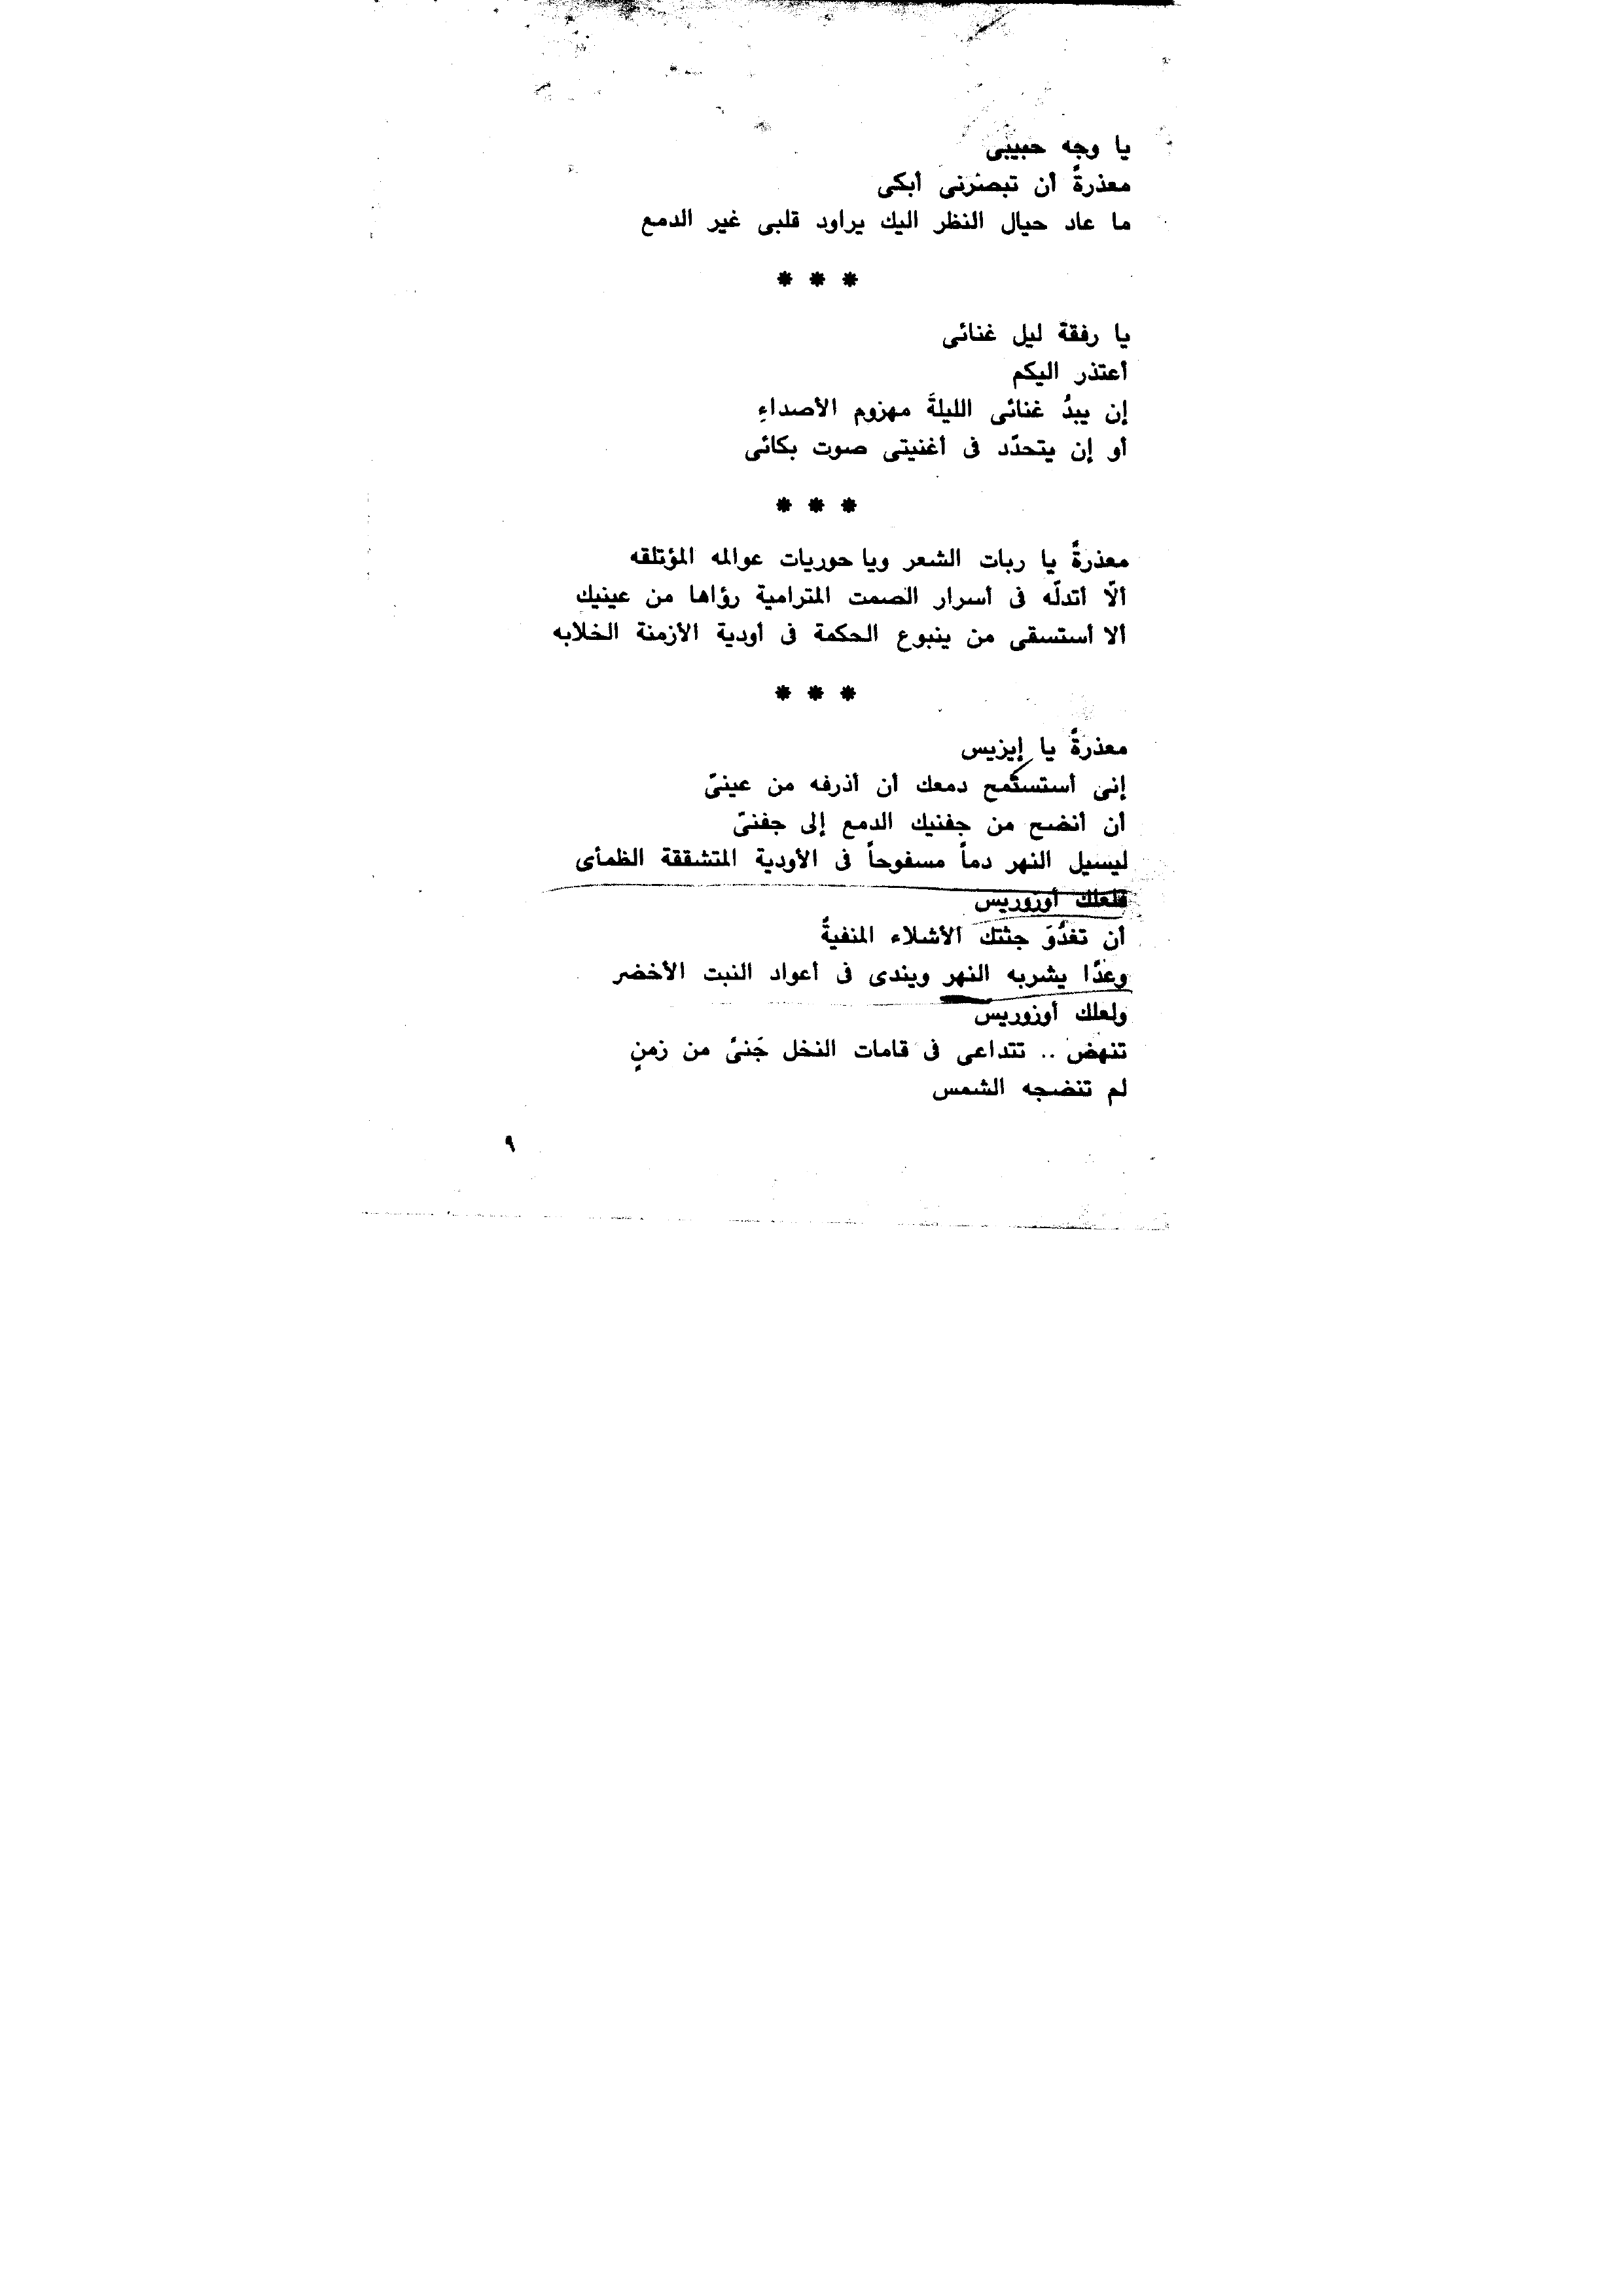 يا وجه حبيبى
معذرةً أن تبصرنى أبكى
ما عاد حيال النظر اليك يراود قلبى غير الدمع
* * *
يا رفقة ليل غنائى
أعتذر اليكم
إن يبدُ غنائى الليلةَ مهزوم الأصداءِ
أو إن يتحدّد فى أغنيتى صوت بكائى
* * *
معذرةً يا ربات الشعر ويا حوريات عوالمه المؤتلقه
ألّا أتدلّه فى أسرار الصمت المترامية رؤاها من عينيك
ألا أستسقى من ينبوع الحكمة فى أودية الأزمنة الخلابه
* * *
معذرةً يا إيزيس
إنى دمعك أن أذرفه من عينىّ
أن أنضح من جفنيك الدمع إلى جفنىّ
ليسيل النهر دماً مسفوحاً فى الأودية المتشققة الظمأى
فلعلك أوزوريس
أن تغدُوَ جثتك الأشلاء المنفيةُ
وعدًا يشربه النهر ويندى فى أعواد النبت الأخضر
ولعلك أوزوريس
تنهض .. تتداعى فى قامات النخل جَنىً من زمنٍ
لم تنضجه الشمس
٩